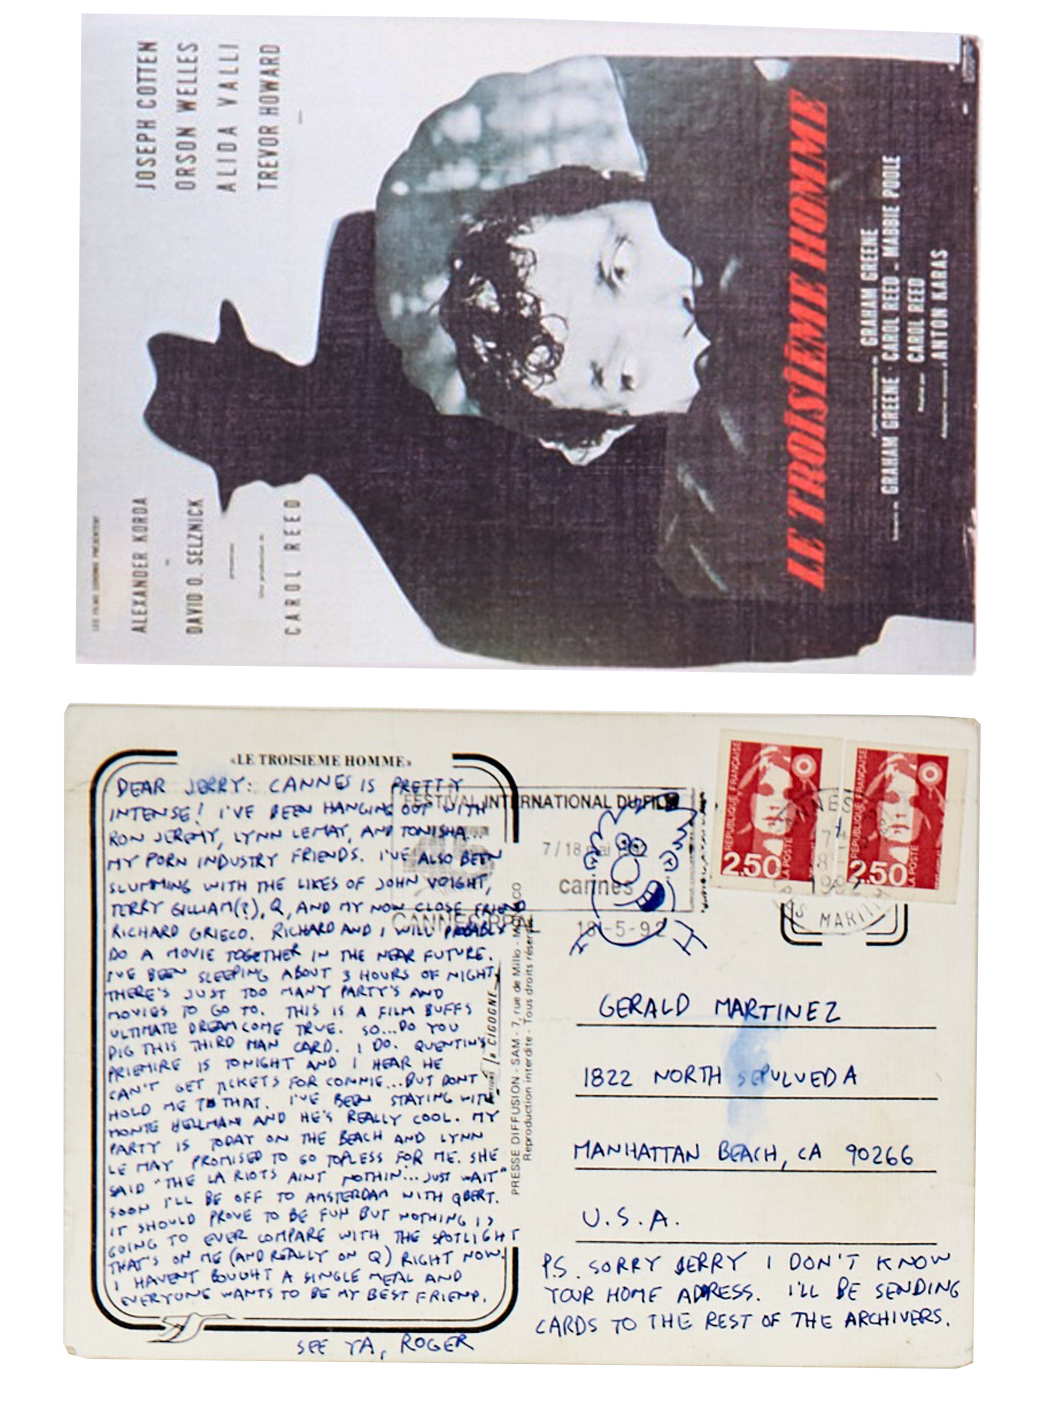 LES FILMS CORONA PRESENTENT
ALEXANDER KORDA
DAVID O. SELZNICK
présentent
Une production de
CAROL REED
JOSEPH COTTEN
ORSON WELLES
ALIDA VALLI
TREVOR HOWARD
LE TROISIÈME HOMME
GRAHAM GREENE
GRAHAM GREENE - CAROL REED - MABBIE POOLE
CAROL REED
ANTON KARAS
«LE TROISIEME HOMME»
DEAR JERRY: CANNES IS PRETTY
INTENSE! I'VE BEEN HANGING OUT WITH
RON JEREMY, LYNN LEMAY, AND TONISHA...
MY PORN INDUSTRY FRIENDS. I'VE ALSO BEEN
SLUMMING WITH THE LIKES OF JOHN VOIGHT,
TERRY GILLIAM(?), Q, AND MY NOW CLOSE FRIEND
RICHARD GRIECO. RICHARD AND I WILL PROBABLY
DO A MOVIE TOGETHER IN THE NEAR FUTURE.
I'VE BEEN SLEEPING ABOUT 3 HOURS OF NIGHT,
THERE'S JUST TOO MANY PARTY'S AND
MOVIES TO GO TO. THIS IS A FILM BUFFS
ULTIMATE DREAM COME TRUE. SO...DO YOU
DIG THIS THIRD MAN CARD. I DO. QUENTIN'S
PRIEMIRE IS TONIGHT AND I HEAR HE
CAN'T GET TICKETS FOR CONNIE...BUT DONT
HOLD ME TO THAT. I'VE BEEN STAYING WITH
MONTE HELLMAN AND HE'S REALLY COOL. MY
PARTY IS TODAY ON THE BEACH AND LYNN
LE MAY PROMISED TO GO TOPLESS FOR ME. SHE
SAID "THE LA RIOTS AINT NOTHIN'...JUST WAIT"
SOON I'LL BE OFF TO AMSTERDAM WITH QBERT.
IT SHOULD PROVE TO BE FUN BUT NOTHING IS
GOING TO EVER COMPARE WITH THE SPOTLIGHT
THAT'S ON ME (AND REALLY ON Q) RIGHT NOW.
I HAVENT BOUGHT A SINGLE MEAL AND
EVERYONE WANTS TO BE MY BEST FRIEND.
SEE YA, ROGER
la CIGOGNE
PRESSE DIFFUSION - SAM - 7, rue de Millo - MONACO
Reproduction interdite - Tous droits réservés
FESTIVAL INTERNATIONAL DU FILM
7/18 mai 1992
cannes
CANNES PPAL
18-5-92
REPUBLIQUE FRANÇAISE
2,50
LA POSTE
REPUBLIQUE FRANÇAISE
2,50
LA POSTE
GERALD MARTINEZ
1822 NORTH SEPULVEDA
MANHATTAN BEACH, CA 90266
U.S.A.
P.S. SORRY JERRY I DON'T KNOW
YOUR HOME ADRESS. I'LL BE SENDING
CARDS TO THE REST OF THE ARCHIVERS.